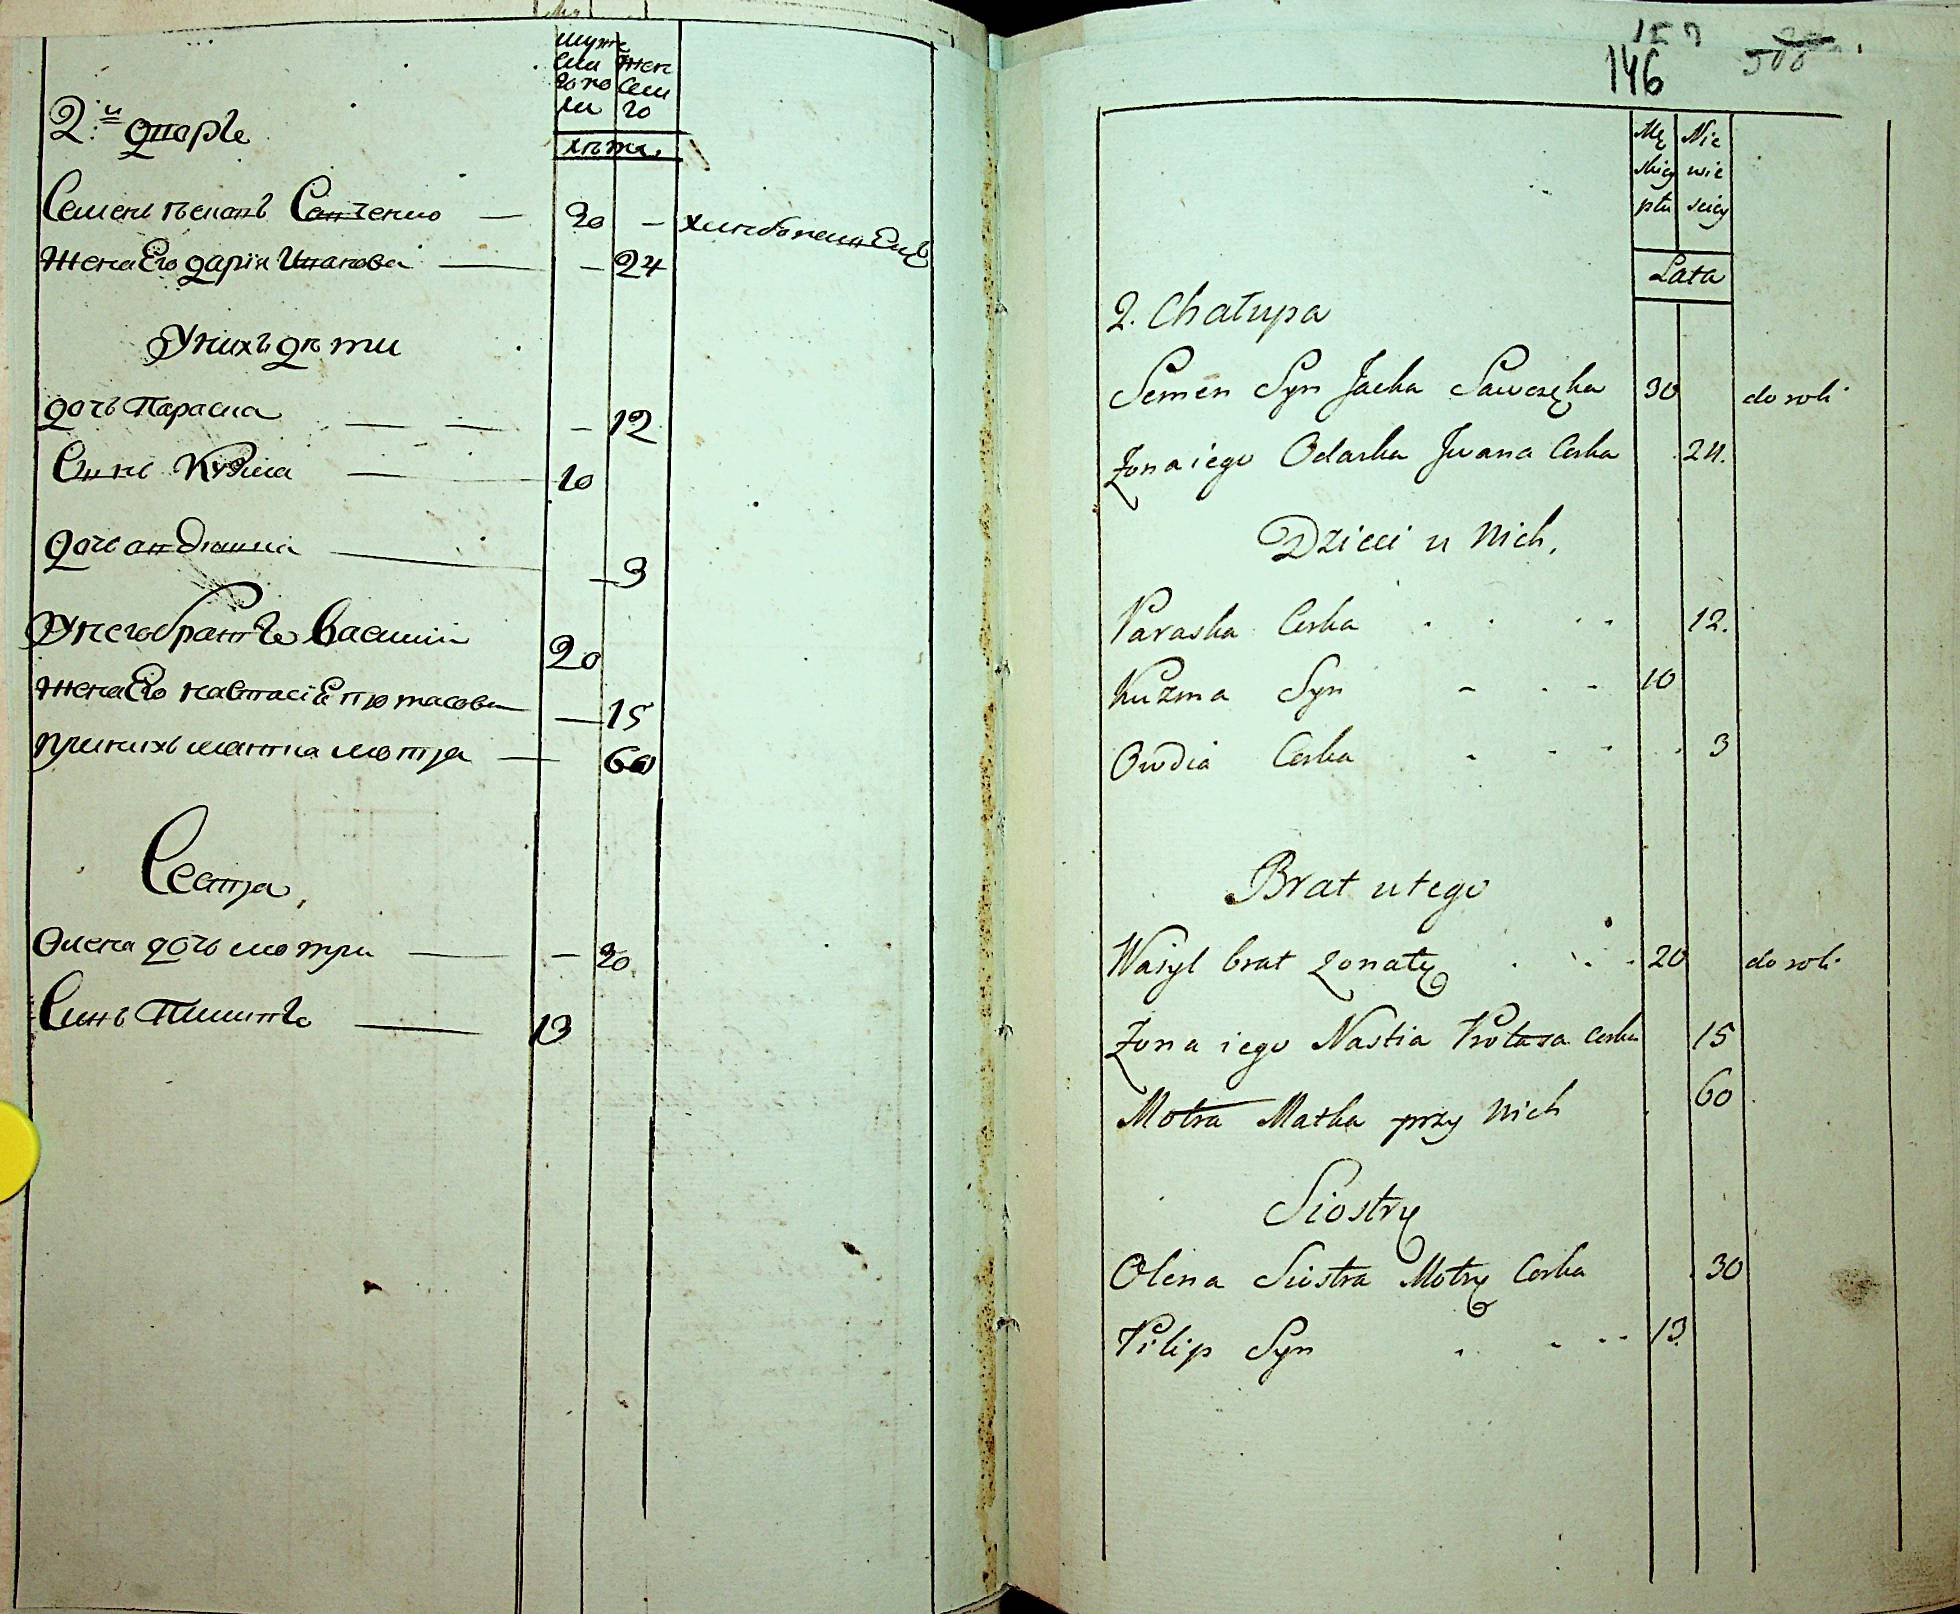 муже
ска жен
го по ска
ла го
лѣта.
2.й дворъ
Семенъ Савченко — 30 —
жена Его дарія Иванова — — 24
У нихъ дѣти
дочь Параска — — — 12
Синъ Кузма — 10
дочь — 3
У него братъ Василій 20
жена Его настасіѣ — 15
при нихъ матка мотра — 60
Сестра,
Олена дочь мотри — — 30
Синъ Пилипъ — 13
157
146
Mę Nie
skiey wie
płci sciey
Lata
2. Chałupa
Semen Syn Jacka Sawczęka 30 do roli
Żona iego Odarka Jwana Corka 24.
Dzieci u Nich.
Paraska Corka 12.
Kuzma Syn 10
Owdia Corka 3
Brat u tego
Wasyl brat żonaty 20 do roli
Żona iego Nastia Protasa Corka 15
Motra Matka przy Nich 60
Siostry
Olena Siostra Motry Corka 30
Pilip Syn 13